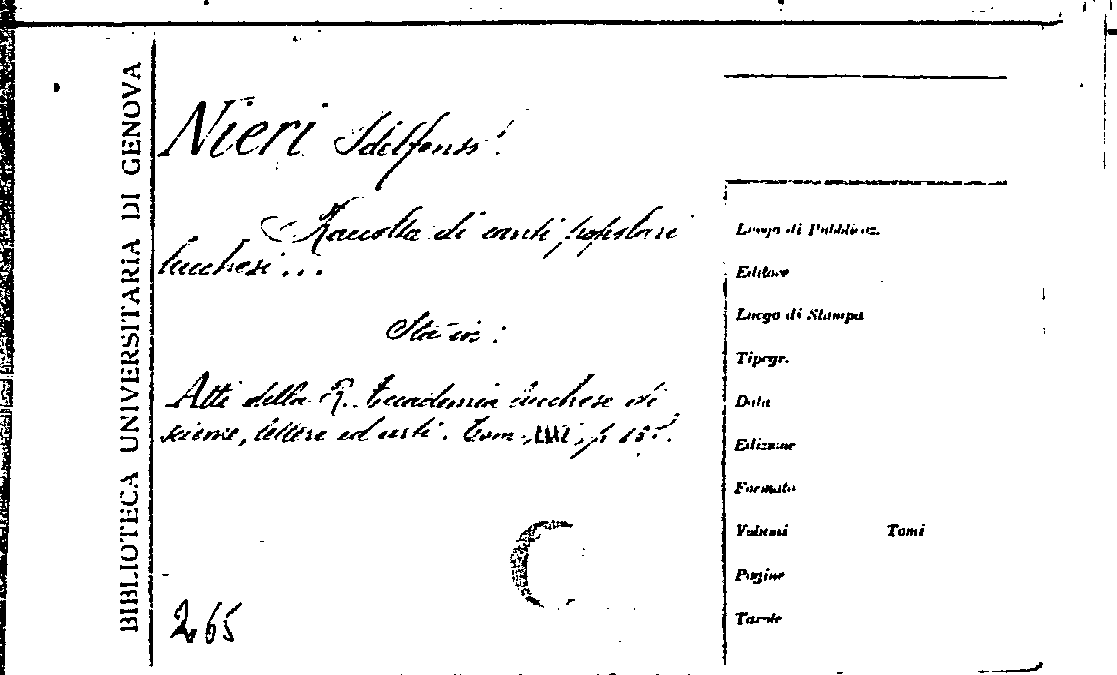 BIBLIOTECA UNIVERSITARIA DI GENOVA
Nieri Idelfonso
Raccolta di canti popolari
lucchesi...
Sta in:
Atti della R. Accademia lucchese di
scienze, lettere ed arti. Tom. p.
265
Luogo di Pubblicaz.
Editore
Luogo di Stampa
Tipogr.
Data
Edizione
Formato
Volumi Tomi
Pagine
Tavole